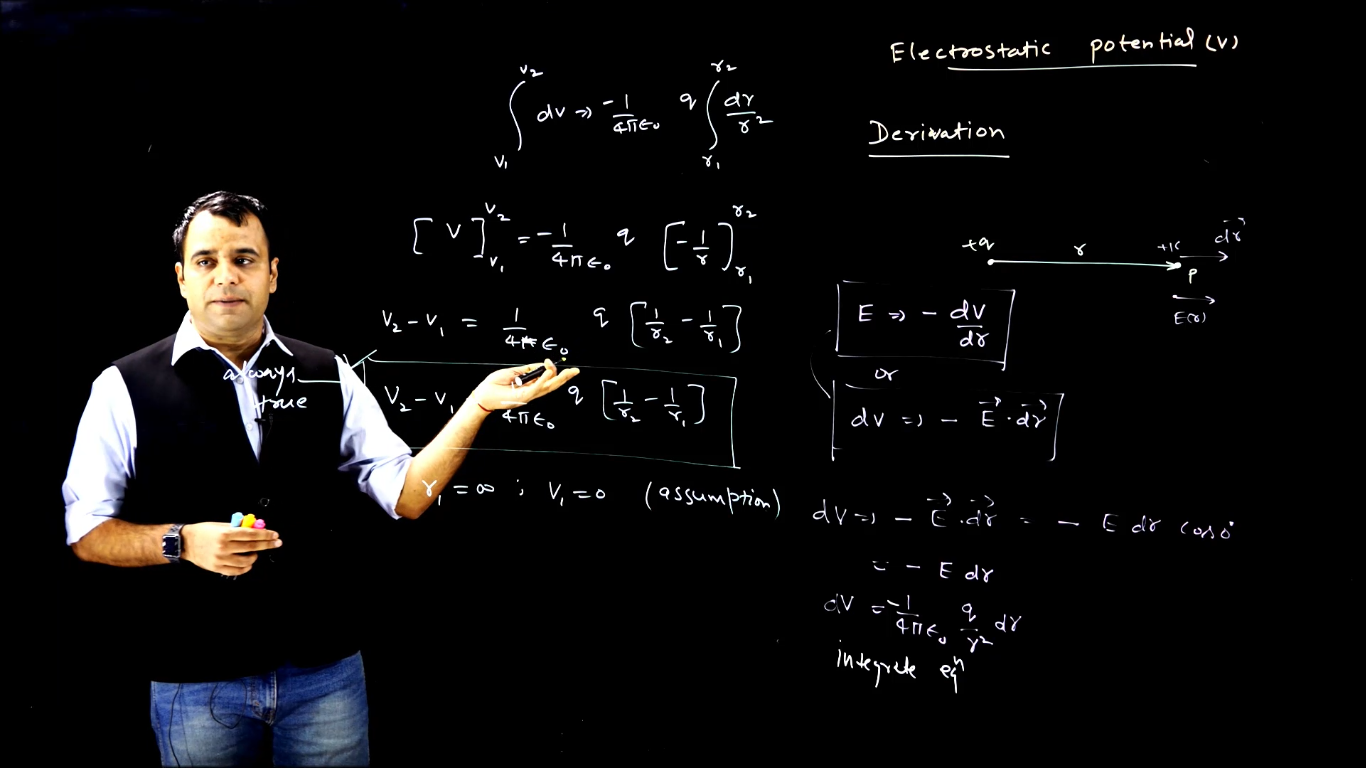 Electrostatic potential (V)
Derivation
+q r +1C dr⃗
P
E(r)
E ⇒ - dV/dr
or
dV ⇒ - E⃗ . dr⃗
dV ⇒ - E⃗ . dr⃗ = - E dr cos0°
= - E dr
dV = -1/4πε₀ q/r² dr
integrate eqⁿ
∫_{V₁}^{V₂} dV ⇒ -1/4πε₀ q ∫_{r₁}^{r₂} dr/r²
[V]_{V₁}^{V₂} = -1/4πε₀ q [-1/r]_{r₁}^{r₂}
V₂ - V₁ = 1/4πε₀ q [1/r₂ - 1/r₁]
always
true
V₂ - V₁ 4πε₀ q [1/r₂ - 1/r₁]
r₁ = ∞ ; V₁ = 0 (assumption)